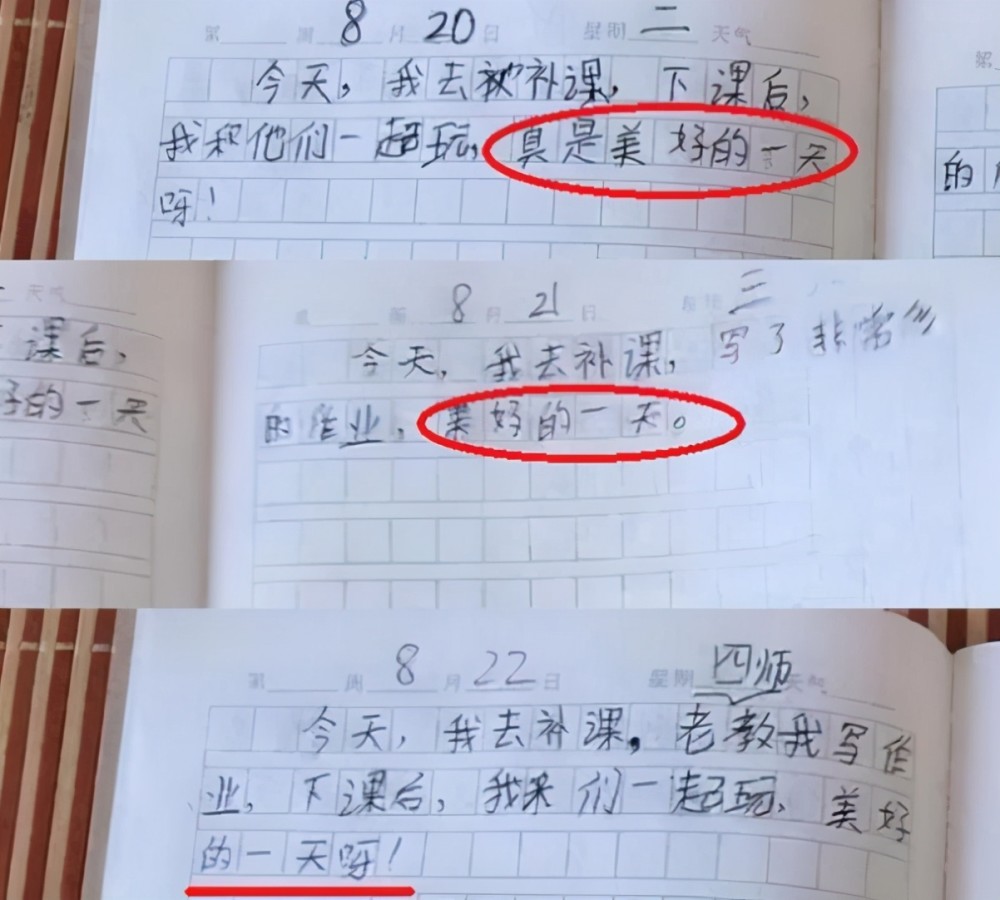 第 周 8 月 20 日 星期 二 天气
今天，我去被补课，下课后，
我和他们一超玩，真是美好的一天
呀！
第
的
天气
课后，
好的一天
8 月 21 日 星期 三
今天，我去补课，写了非常多
的作业，美好的一天。
第 周 8 月 22 日 星期 四 天气
师
今天，我去补课。老教我写作
业，下课后，我来们一起玩，美好
的一天呀！